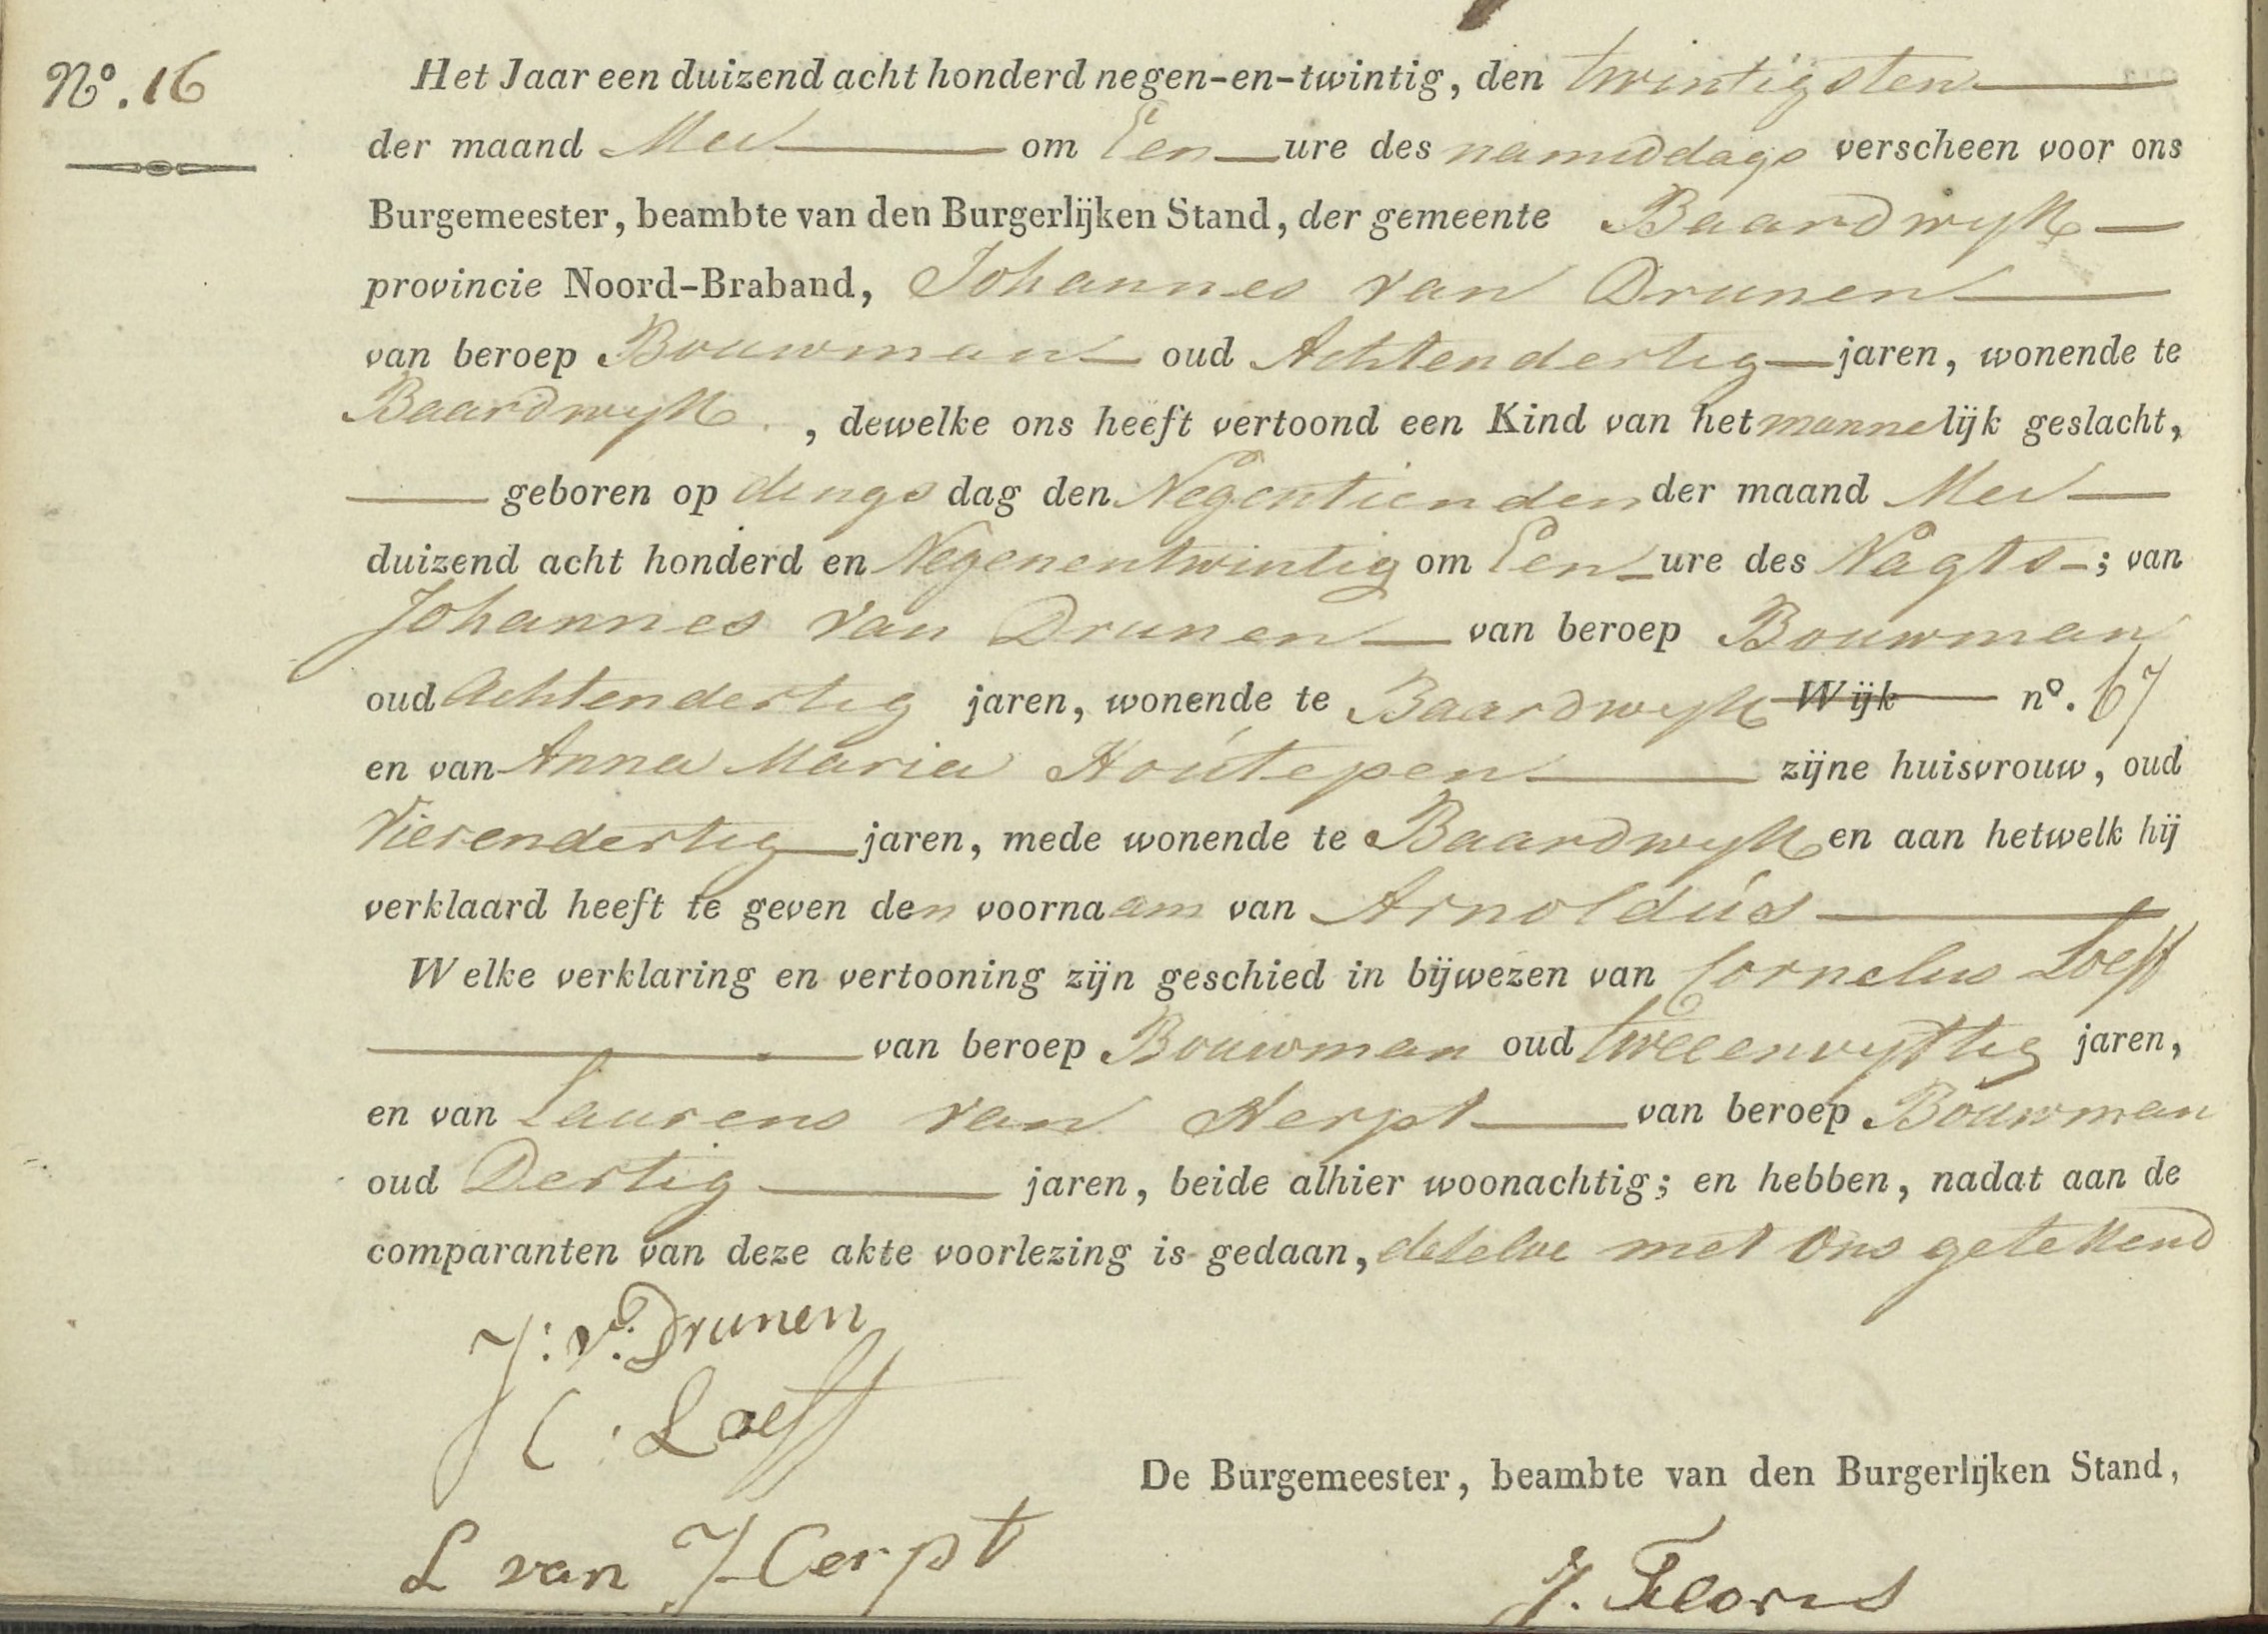 No. 16
Het Jaar een duizend acht honderd negen-en-twintig, den twintigsten
der maand Mei om Een ure des namiddags verscheen voor ons
Burgemeester, beambte van den Burgerlijken Stand, der gemeente Baardwyk
provincie Noord-Braband, Johannes van Drunen
van beroep Bouwman oud Achtendertig jaren, wonende te
Baardwyk, dewelke ons heeft vertoond een Kind van het mannelijk geslacht,
geboren op dings dag den Negentienden der maand Mei
duizend acht honderd en Negenentwintig om Een ure des Nagts; van
Johannes van Drunen van beroep Bouwman
oud Achtendertig jaren, wonende te Baardwyk Wijk no. 67
en van Anna Maria Houtepen zijne huisvrouw, oud
Vierendertig jaren, mede wonende te Baardwyk en aan hetwelk hij
verklaard heeft te geven den voornaam van Arnoldus
Welke verklaring en vertooning zijn geschied in bijwezen van Cornelus Loeff
van beroep Bouwman oud tweeenvyftig jaren,
en van Laurens van Herpt van beroep Bouwman
oud Dertig jaren, beide alhier woonachtig; en hebben, nadat aan de
comparanten van deze akte voorlezing is gedaan, deselve met Ons getekend
J: v: Drunen
C: Loeff
L van Herpt
De Burgemeester, beambte van den Burgerlijken Stand,
J. Floris